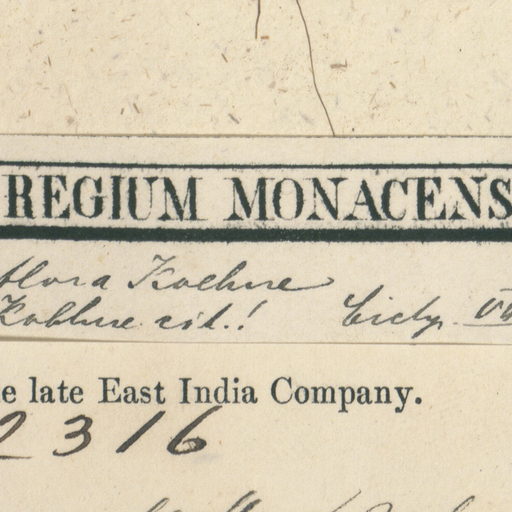 REGIUM MONACENS
flora Koehne
Koehne vid.!
e late East India Company.
2316